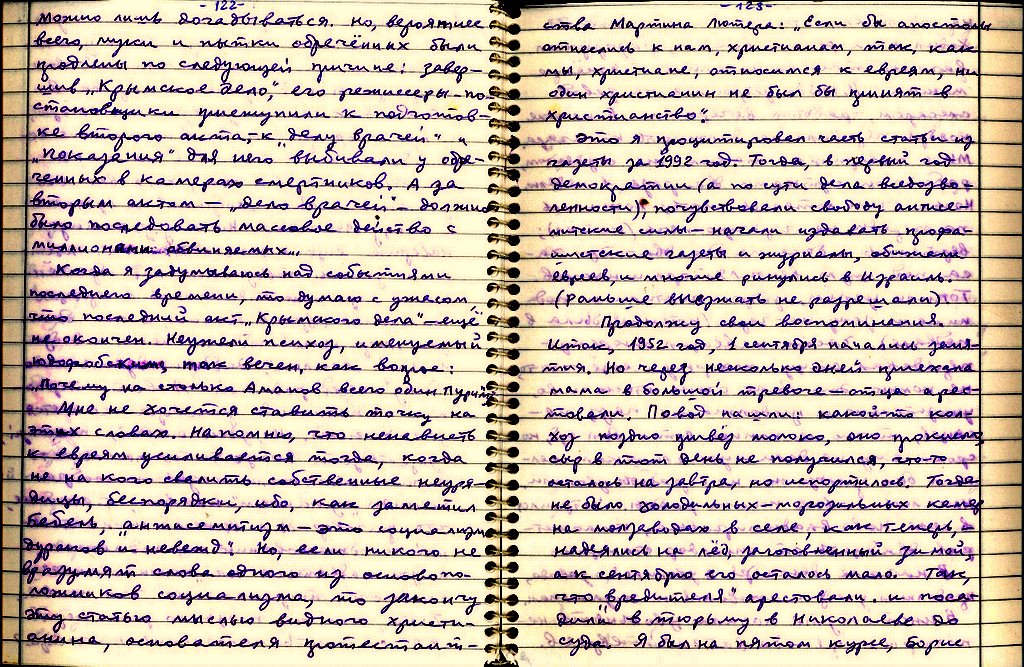 -122-
можно лишь догадываться. Но, вероятнее
всего, муки и пытки обречённых были
продлены по следующей причине: завер-
шив „Крымское дело", его режиссеры-по-
становщики приступили к подготов-
ке второго акта,-к „делу врачей" и
„показания" для него выбивали у обре-
ченных в камерах смертников. А за
вторым актом — „дело врачей" — должно
было последовать массовое действо с
миллионами обвиняемых...
Когда я задумываюсь над событиями
последнего времени, то думаю с ужасом,
что последний акт „Крымского дела"—ещё
не окончен. Неужели психоз, именуемый
юдофобским, так вечен, как вопрос:
„Почему на столько Аманов всего один Пурим?
Мне не хочется ставить точку на
этих словах. Напомню, что ненависть
к евреям усиливается тогда, когда
не на кого свалить собственные неуря-
дицы, беспорядки, ибо, как заметил
Бебель, „антисемитизм — это социализм
дураков и невежд". Но, если никого не
вразумят слова одного из осново по-
ложников социализма, то закончу
эту статью мыслью видного христи-
анина, основателя протестант-
-123-
ства Мартина Лютера: „Если бы апостолы
отнеслись к нам, христианам, так, как
мы, христиане, относимся к евреям, ни
один христианин не был бы принят в
христианство".
Это я процитировал часть статьи из
газеты за 1992 год. Тогда, в первый год
демократии (а по сути дела вседозво-
ленности), почувствовали свободу антисе-
митские силы — начали издавать профа-
шистские газеты и журналы, обижали
евреев, и многие ринулись в Израиль.
(Раньше выезжать не разрешали)
Продолжу свои воспоминания.
Итак, 1952 год, 1 сентября начались заня-
тия. Но через несколько дней приехала
мама в большой тревоге — отца арес-
товали. Повод нашли: какой-то кол-
хоз поздно привёз молоко, оно прокисло,
сыр в тот день не получился, что-то
осталось на завтра, но испортилось. Тогда
не было холодильных-морозильных камер
на молзаводах в селе, как теперь, -
надеялись на лёд, заготовленный зимой,
а к сентябрю его осталось мало. Так,
что „вредителя" арестовали и поса-
дили в тюрьму в Николаеве до
суда. Я был на пятом курсе, Борис